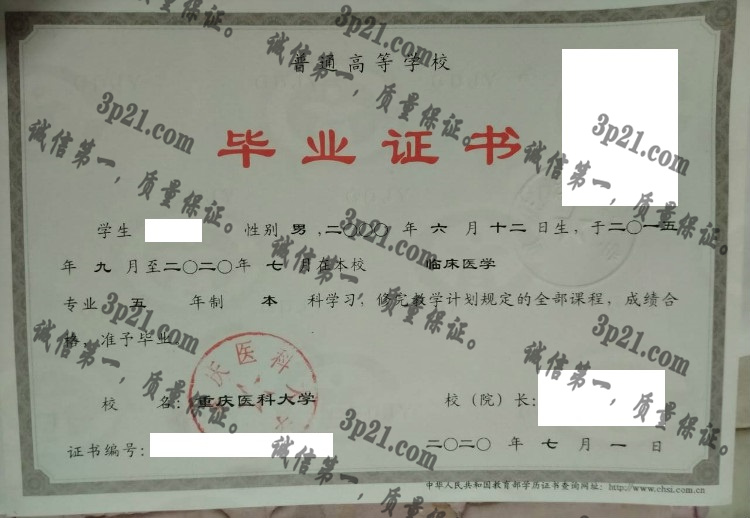 普通高等学校
毕业证书
学生 性别 男 ,二〇〇〇年 六 月 十二 日生，于二〇一五
年 九 月至二〇二〇年 七 月在本校 临床医学
专业 五 年制 本 科学习，修完教学计划规定的全部课程，成绩合
格，准予毕业。
庆医科大
校 名：重庆医科大学 校（院）长：
证书编号： 二〇二〇 年 七 月 一 日
中华人民共和国教育部学历证书查询网址：http://www.chsi.com.cn
3p21.com
诚信第一，质量保证。
3p21.com
诚信第一，质量保证。
3p21.com
诚信第一，质量保证。
3p21.com
诚信第一，质量保证。
3p21.com
诚信第一，质量保证。
3p21.com
诚信第一，质量保证。
3p21.com
诚信第一，质量保证。